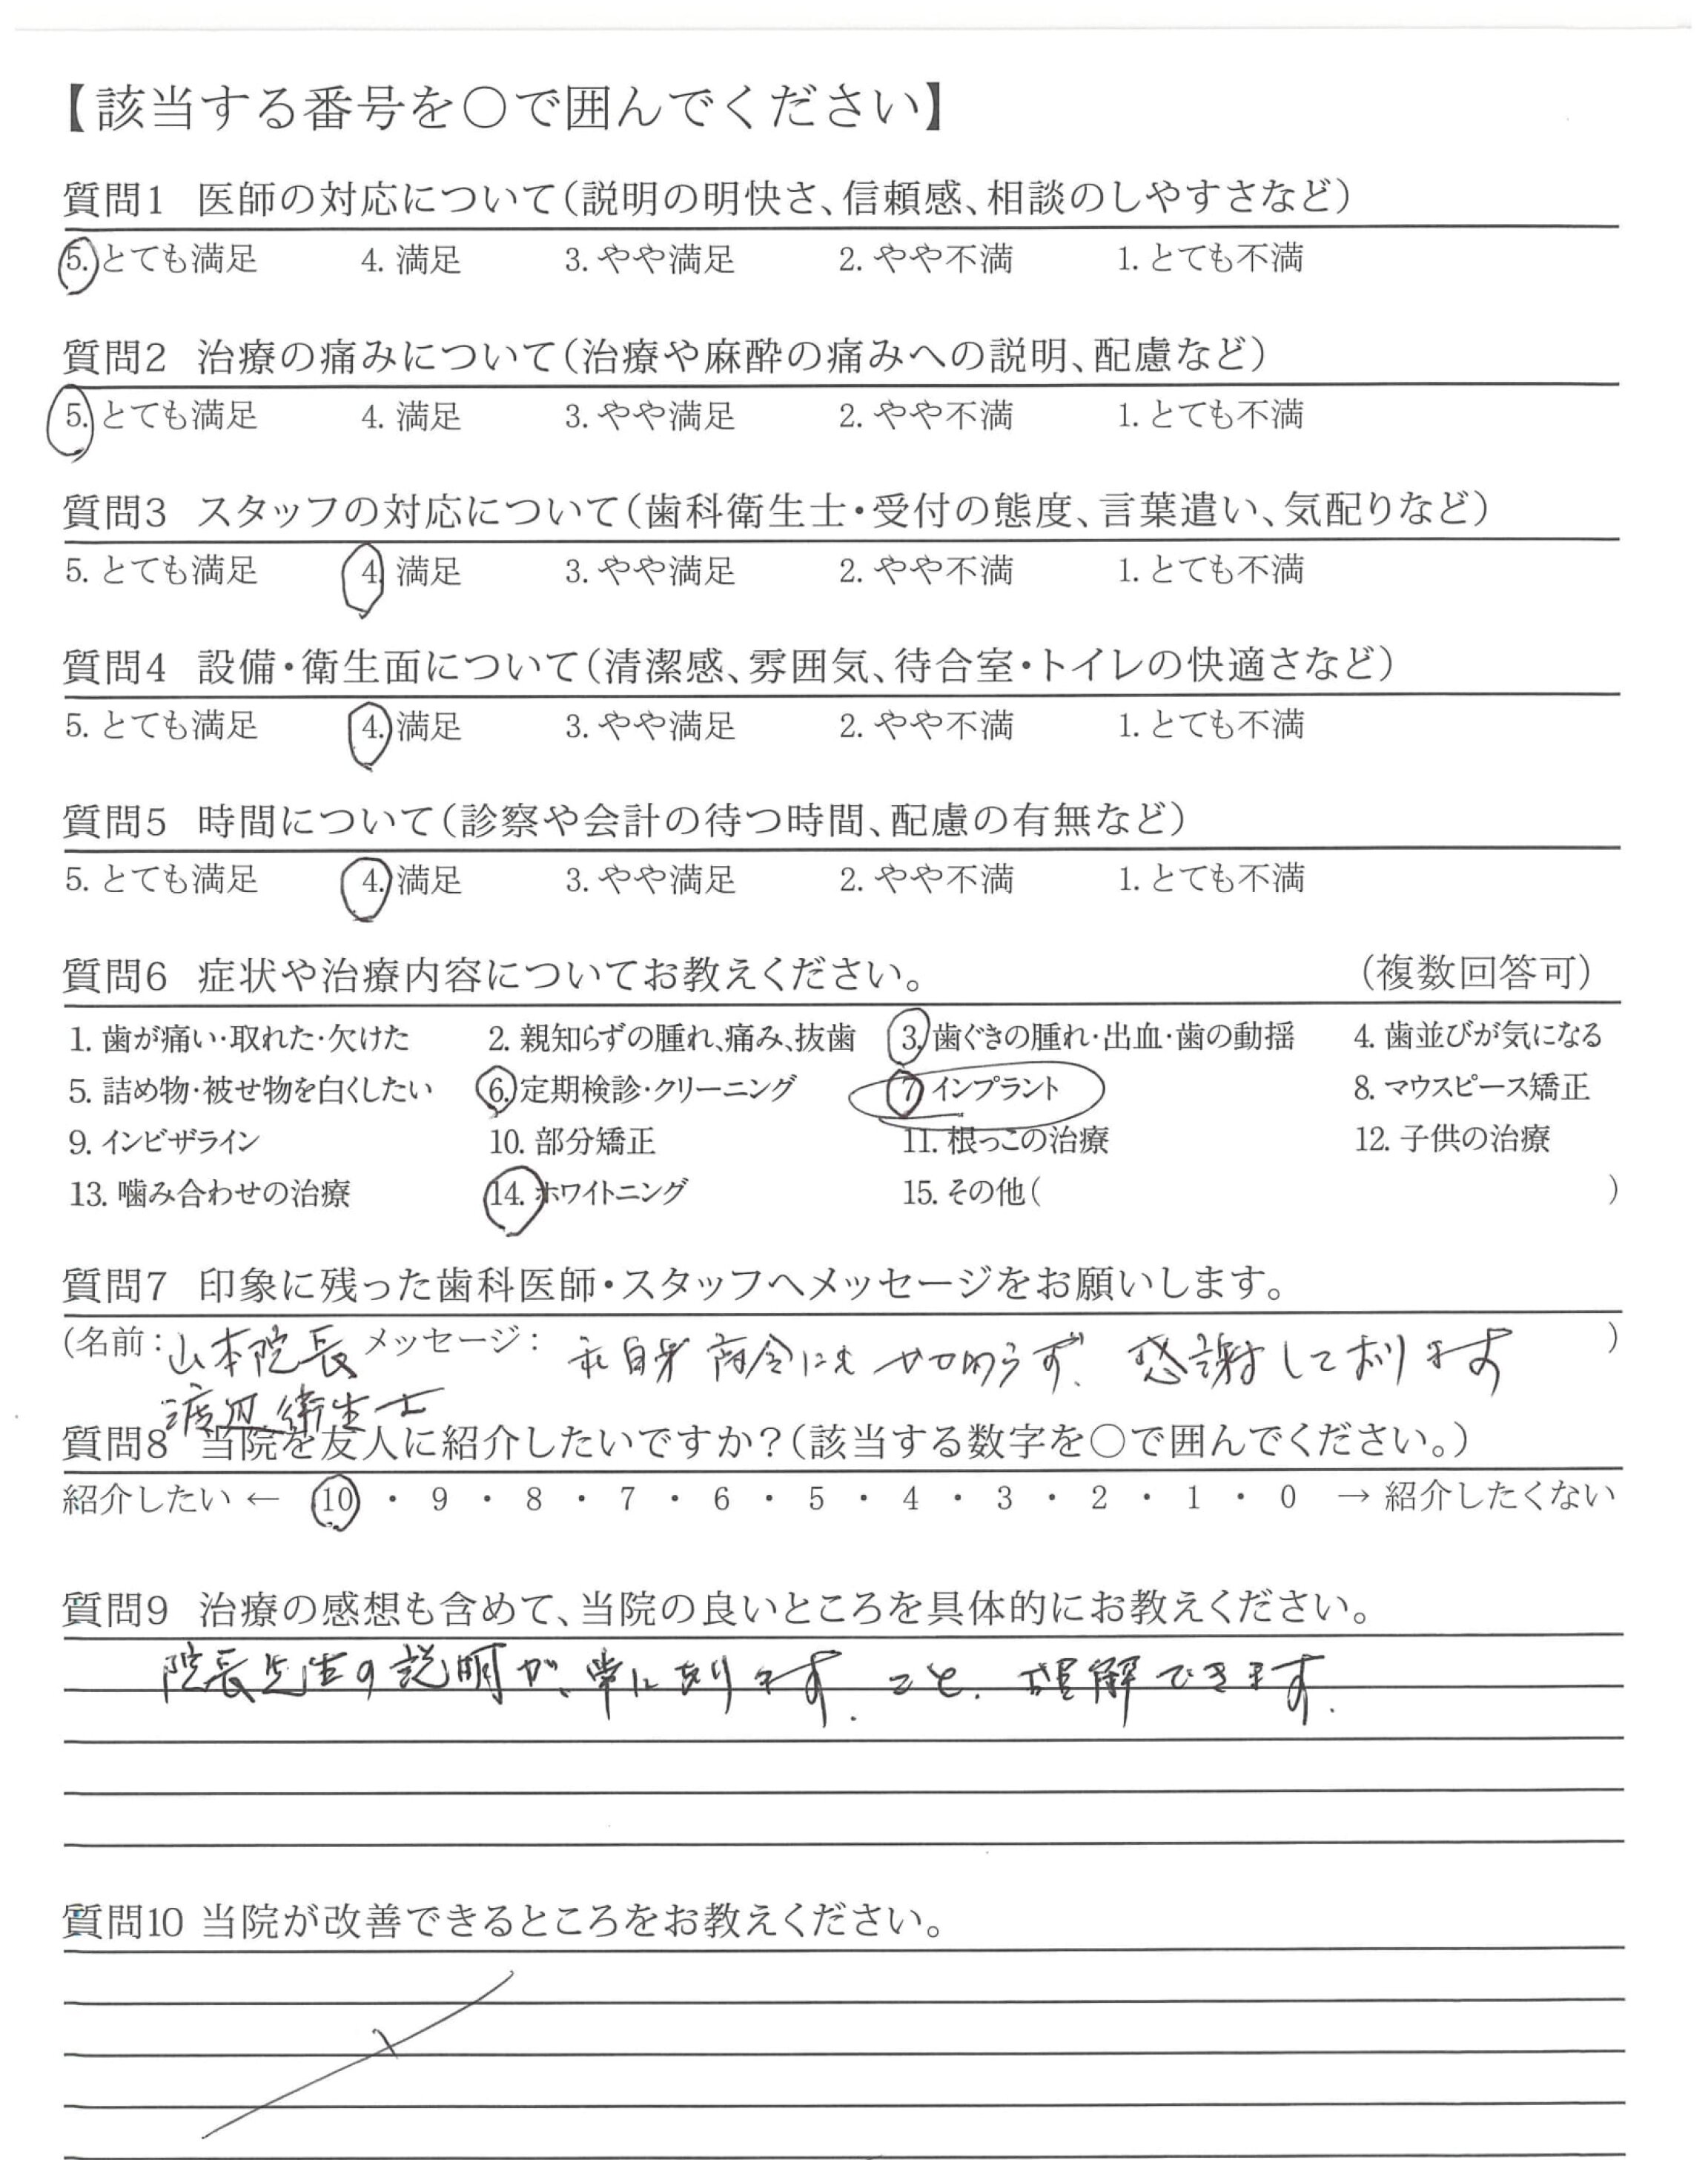 【該当する番号を○で囲んでください】
質問1 医師の対応について(説明の明快さ、信頼感、相談のしやすさなど)
5. とても満足 4. 満足 3. やや満足 2. やや不満 1. とても不満
質問2 治療の痛みについて(治療や麻酔の痛みへの説明、配慮など)
5. とても満足 4. 満足 3. やや満足 2. やや不満 1. とても不満
質問3 スタッフの対応について(歯科衛生士・受付の態度、言葉遣い、気配りなど)
5. とても満足 4. 満足 3. やや満足 2. やや不満 1. とても不満
質問4 設備・衛生面について(清潔感、雰囲気、待合室・トイレの快適さなど)
5. とても満足 4. 満足 3. やや満足 2. やや不満 1. とても不満
質問5 時間について(診察や会計の待つ時間、配慮の有無など)
5. とても満足 4. 満足 3. やや満足 2. やや不満 1. とても不満
質問6 症状や治療内容についてお教えください。 (複数回答可)
1. 歯が痛い・取れた・欠けた 2. 親知らずの腫れ、痛み、抜歯 3. 歯ぐきの腫れ・出血・歯の動揺 4. 歯並びが気になる
5. 詰め物・被せ物を白くしたい 6. 定期検診・クリーニング 7. インプラント 8. マウスピース矯正
9. インビザライン 10. 部分矯正 11. 根っこの治療 12. 子供の治療
13. 噛み合わせの治療 14. ホワイトニング 15. その他( )
質問7 印象に残った歯科医師・スタッフへメッセージをお願いします。
(名前:山本院長 メッセージ: 私自身 感謝しております )
渡辺衛生士
質問8 当院を友人に紹介したいですか?(該当する数字を○で囲んでください。)
紹介したい ← 10 ・ 9 ・ 8 ・ 7 ・ 6 ・ 5 ・ 4 ・ 3 ・ 2 ・ 1 ・ 0 → 紹介したくない
質問9 治療の感想も含めて、当院の良いところを具体的にお教えください。
院長先生の説明が、常に有ります. こと. 理解できます.
質問10 当院が改善できるところをお教えください。